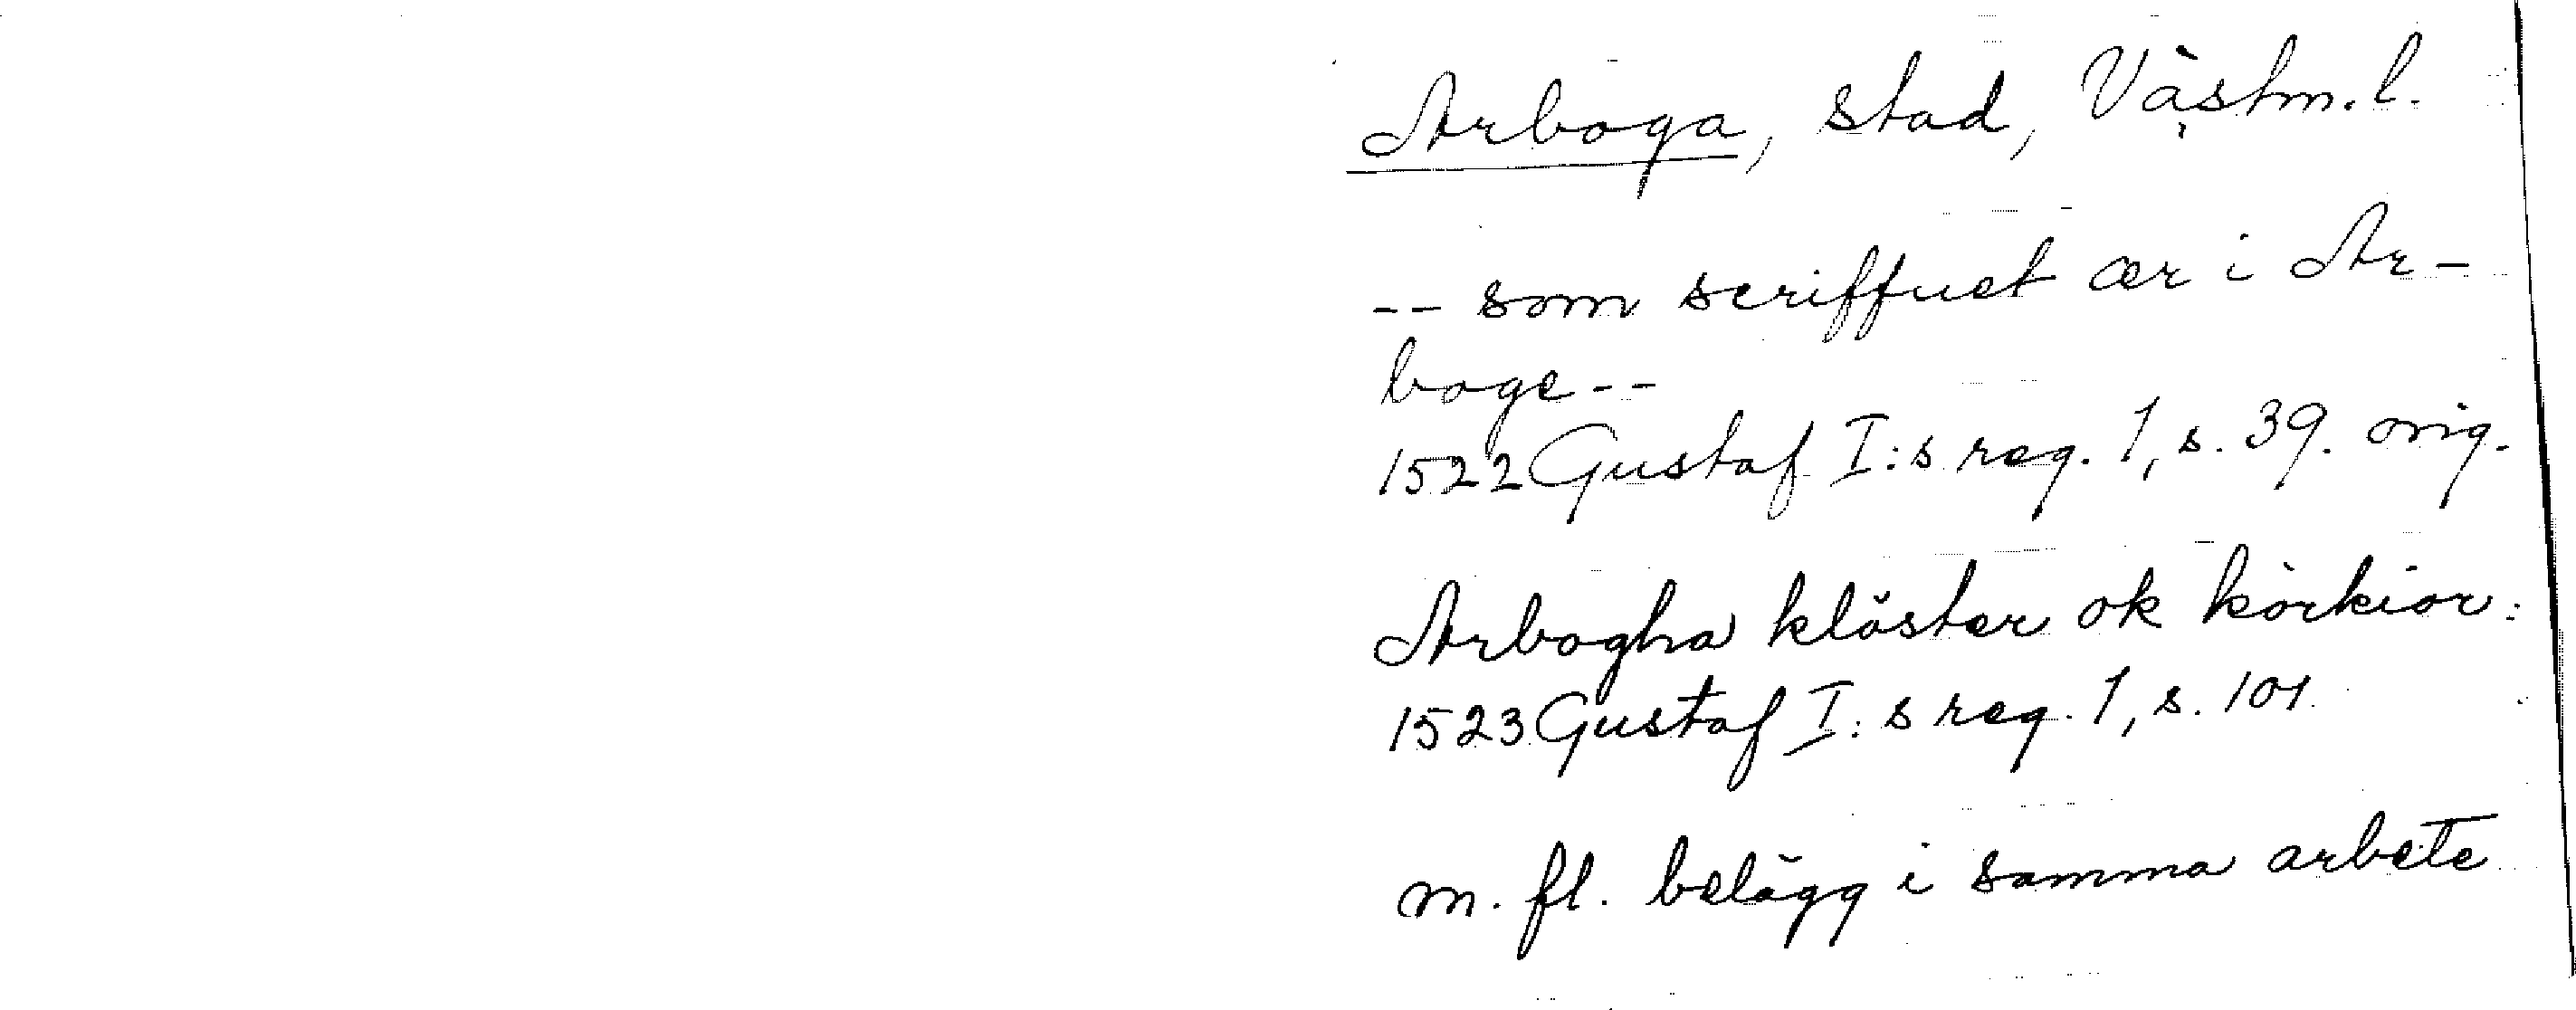 Arboga, stad, Västm. l.
-- som scriffuet ær i Ar-
boge --
1522 Gustaf I:s reg. 1, s. 39. orig.
Arbogha klöster ok körkior:
1523 Gustaf I:s reg. 1, s. 101.
m. fl. belägg i samma arbete